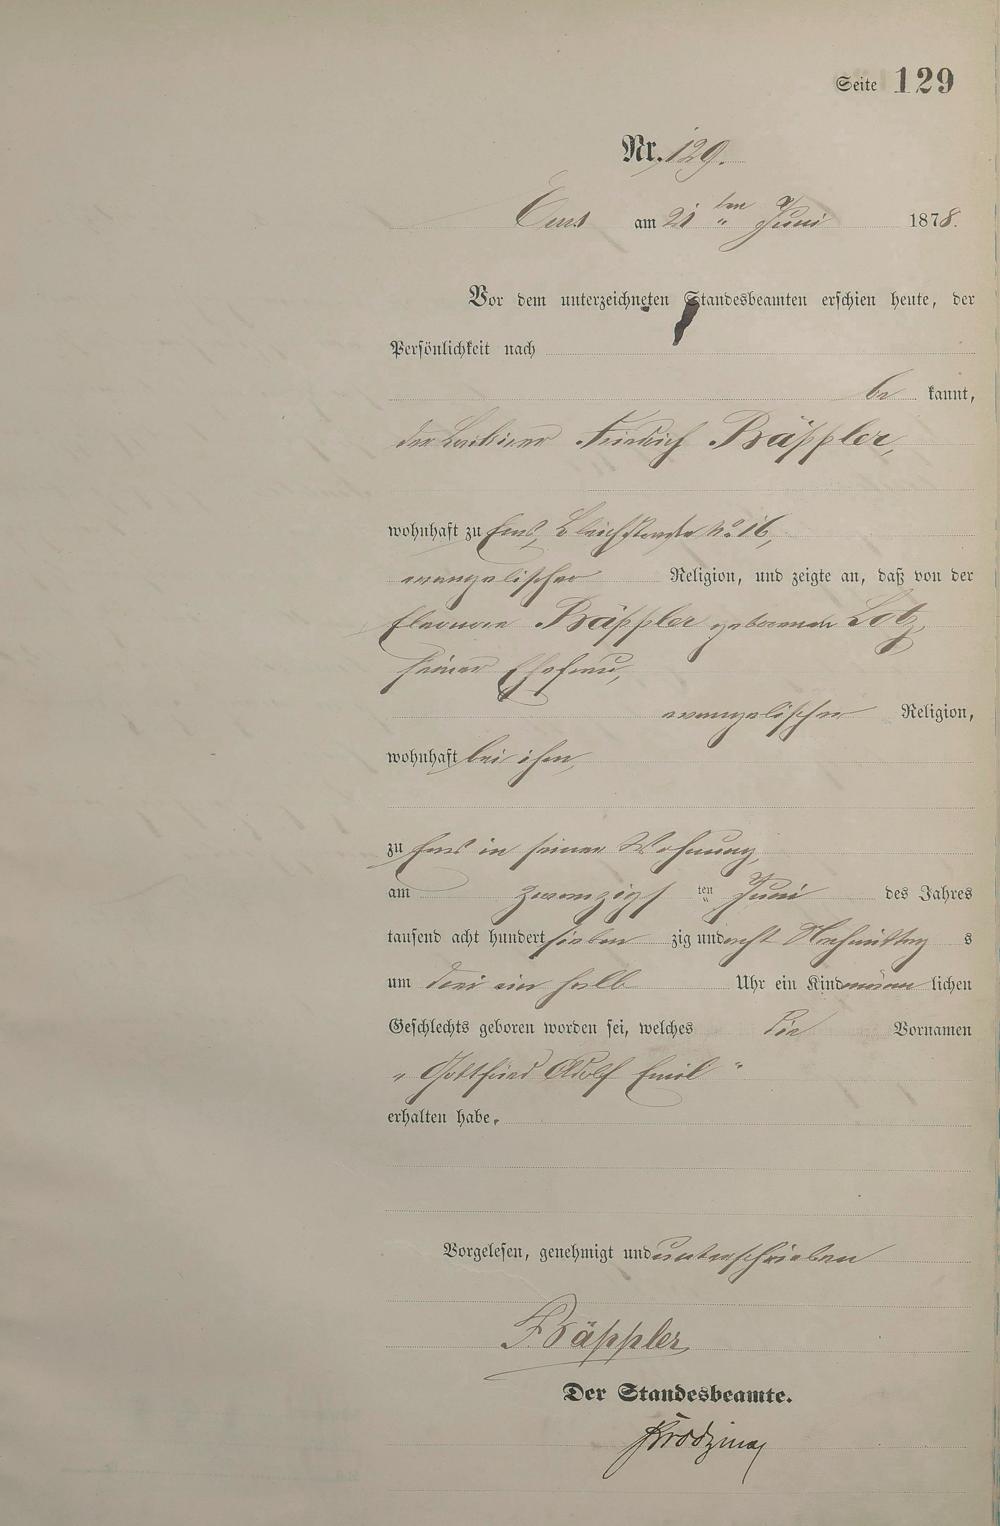 Seite 129
Nr. 129.
Ems am 21 ten Juni 1878.
Vor dem unterzeichneten Standesbeamten erschien heute, der
Persönlichkeit nach
be kannt,
der Barbierer Friedrich Bäppler,
wohnhaft zu Ems, Bleichstraße No 16,
evangelischer Religion, und zeigte an, daß von der
Eleonore Bäppler geborenen Lotz,
seiner Ehefrau,
evangelischer Religion,
wohnhaft bei ihm,
zu Ems in seiner Wohnung,
am zwanzigs ten Juni des Jahres
tausend acht hundert sieben zig und acht Nachmittag s
um drei ein halb Uhr ein Kind männ lichen
Geschlechts geboren worden sei, welches die Vornamen
„Gottfried Adolf Emil"
erhalten habe.
Vorgelesen, genehmigt und unterschrieben
F. Bäppler
Der Standesbeamte.